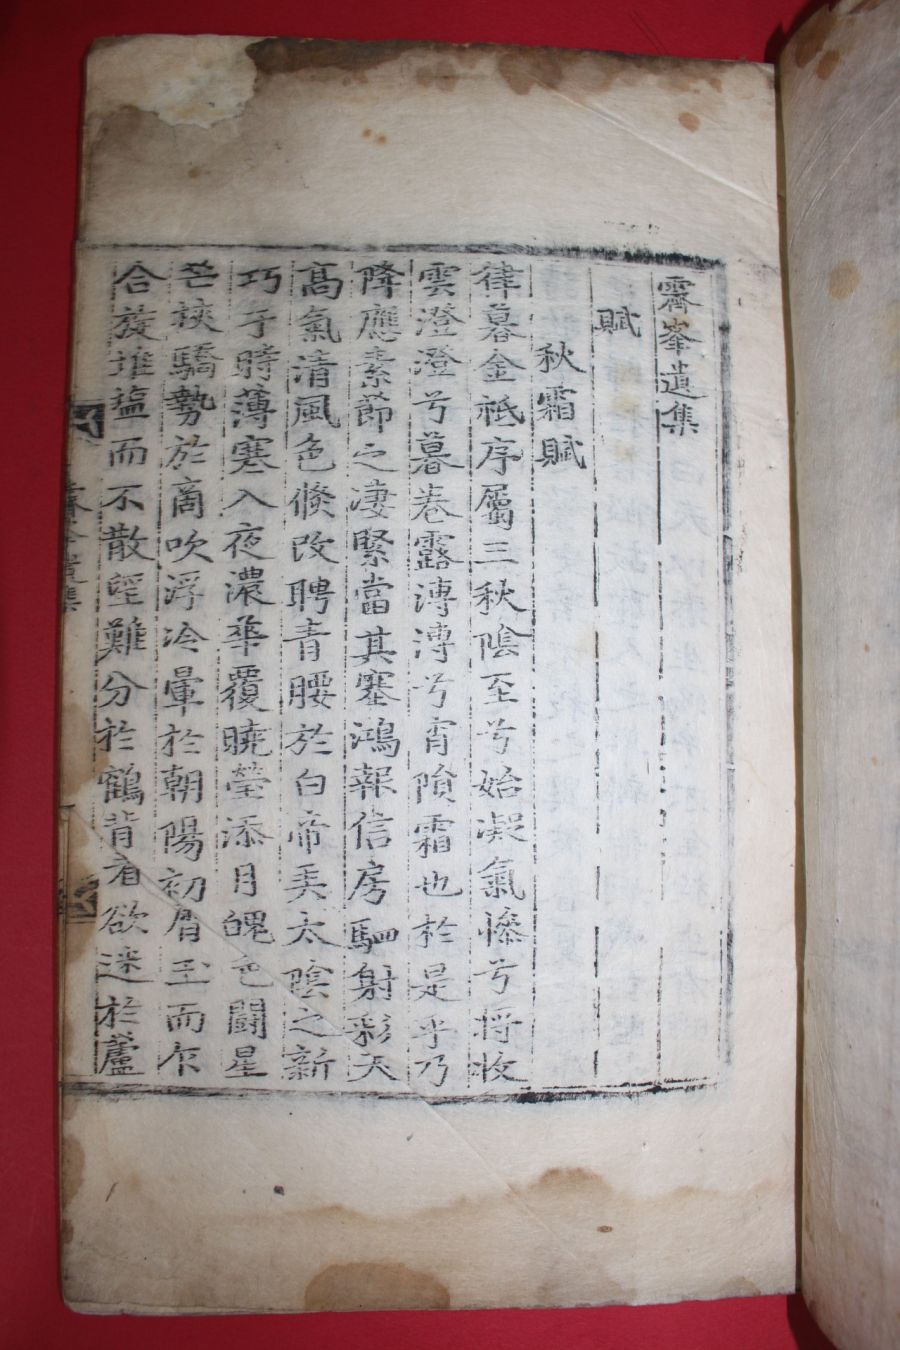 霽峯遺集
賦
秋霜賦
律暮金祗序屬三秋陰至兮始凝氣慘兮將收
雲澄澄兮暮卷露漙漙兮宵隕霜也於是乎乃
降應素節之凄緊當其塞鴻報信房駟射彩天
高氣清風色倏改聘青腰於白帝美太陰之新
巧于時薄寒入夜濃華覆曉瑩添月魄色鬪星
芒挾驕勢於商吹浮冷暈於朝陽初屑玉而乍
合旋堆塩而不散望難分於鶴背看欲迷於蘆